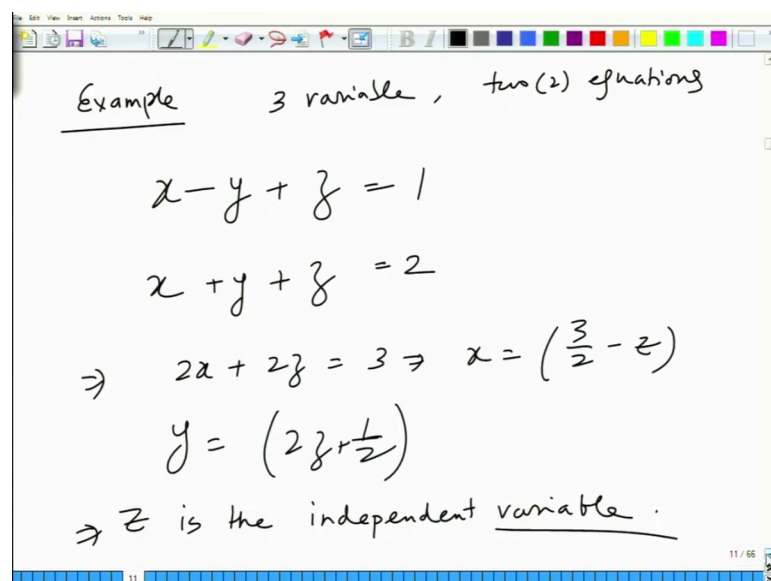 File Edit View Insert Actions Tools Help
B I
Example 3 variable, two (2) equations
x - y + z = 1
x + y + z = 2
⇒ 2x + 2z = 3 ⇒ x = (3/2 - z)
y = (2z + 1/2)
⇒ z is the independent variable.
11 / 66
11